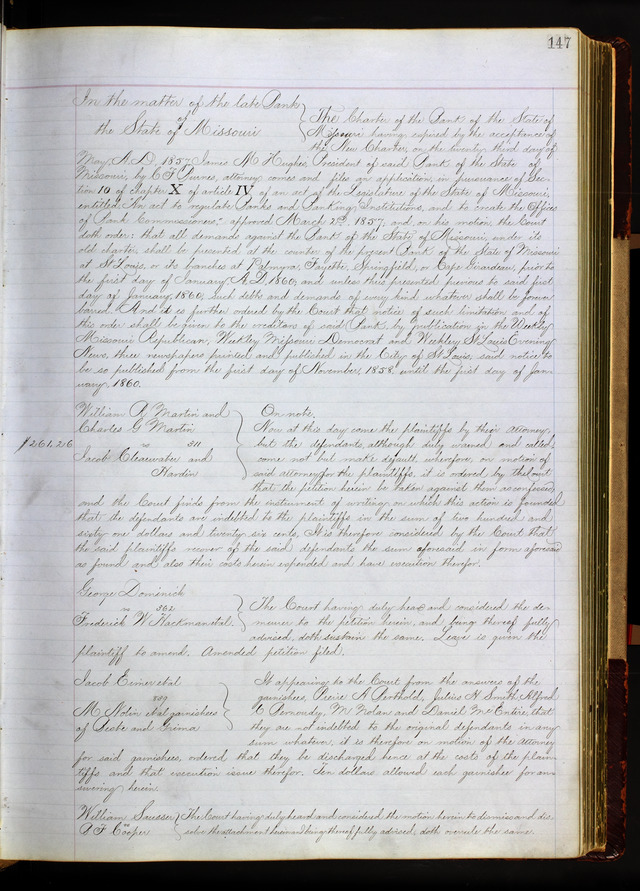 147
In the matter of the late Bank
of
the State of Missouri
The Charter of the Bank of the State of
Missouri having expired by the acceptance of
the New Charter, on the twenty third day of
May, A.D. 1857, James M Hughes, President of said Bank of the State of
Missouri, by attorney, comes and files an application, in pursuance of Sec-
tion 10 of chapter X of article IV of an act of the Legislature of the State of Missouri,
entitled "An act to regulate Banks and Banking Institutions, and to create the Offices
of Bank Commissioners," approved March 2nd 1857. and on his motion, the Court
doth order: that all demands against the Bank of the State of Missouri, under its
old charter, shall be presented at the counter of the present Bank of the State of Missouri
at St Louis, or its branches at Palmyra, Fayette, Springfield, or Cape Girardeau, prior to
the first day of January A.D. 1860, and unless thus presented, previous to said first
day of January, 1860, such debts and demands of every kind whatever shall be forever
barred. And it is further ordered by the Court that notice of such limitation and of
this order shall be given to the creditors of said Bank, by publication in the Weekly
Missouri Republican, Weekly Missouri Democrat and Weekly St Louis Evening
News, three newspapers printed and published in the City of St Louis, said notice to
be so published from the first day of November, 1858, until the first day of Jan-
uary 1860.
William A Martin and
Charles G Martin
vs 511
$261.26
Jacob Clearwater and
Hardin
On note.
Now at this day come the plaintiffs by their attorney,
but the defendants, although duly warned and called,
come not but make default, wherefore, on motion of
said attorney for the plaintiffs, it is ordered by the Court
that the petition herein be taken against them as confessed
and the Court finds from the instrument of writing on which this action is founded
that the defendants are indebted to the plaintiffs in the sum of two hundred and
sixty one dollars and twenty six cents, It is therefore considered by the Court that
the said plaintiffs recover of the said defendants the sum aforesaid in form aforesaid
as found and also their costs herein expended and have execution therefor.
George Dominick
vs 562
Frederick W Hackman etal.
The Court having duly heard and considered the de-
murrer to the petition herein, and being thereof fully
advised, doth sustain the same. Leave is given the
plaintiff to amend. Amended petition filed.
Jacob Eimer etal
vs
M Nolin etal garnishees
of Beebe and
It appearing to the Court from the answers of the
garnishees, Pierre A Berthold, Julius H Smith, Alfred
C Bernoudy, M Nolan and Daniel McEntire, that
they are not indebted to the original defendants in any
sum whatever, it is therefore on motion of the attorney
for said garnishees, ordered that they be discharged hence at the costs of the plain-
tiffs and that execution issue therefor. Ten dollars allowed each garnishee for an-
swering herein.
William Sausser
vs
A F Cooper
The Court having duly heard and considered the motion herein to dismiss and dis-
solve the attachment herein and being thereof fully advised, doth overrule the same.